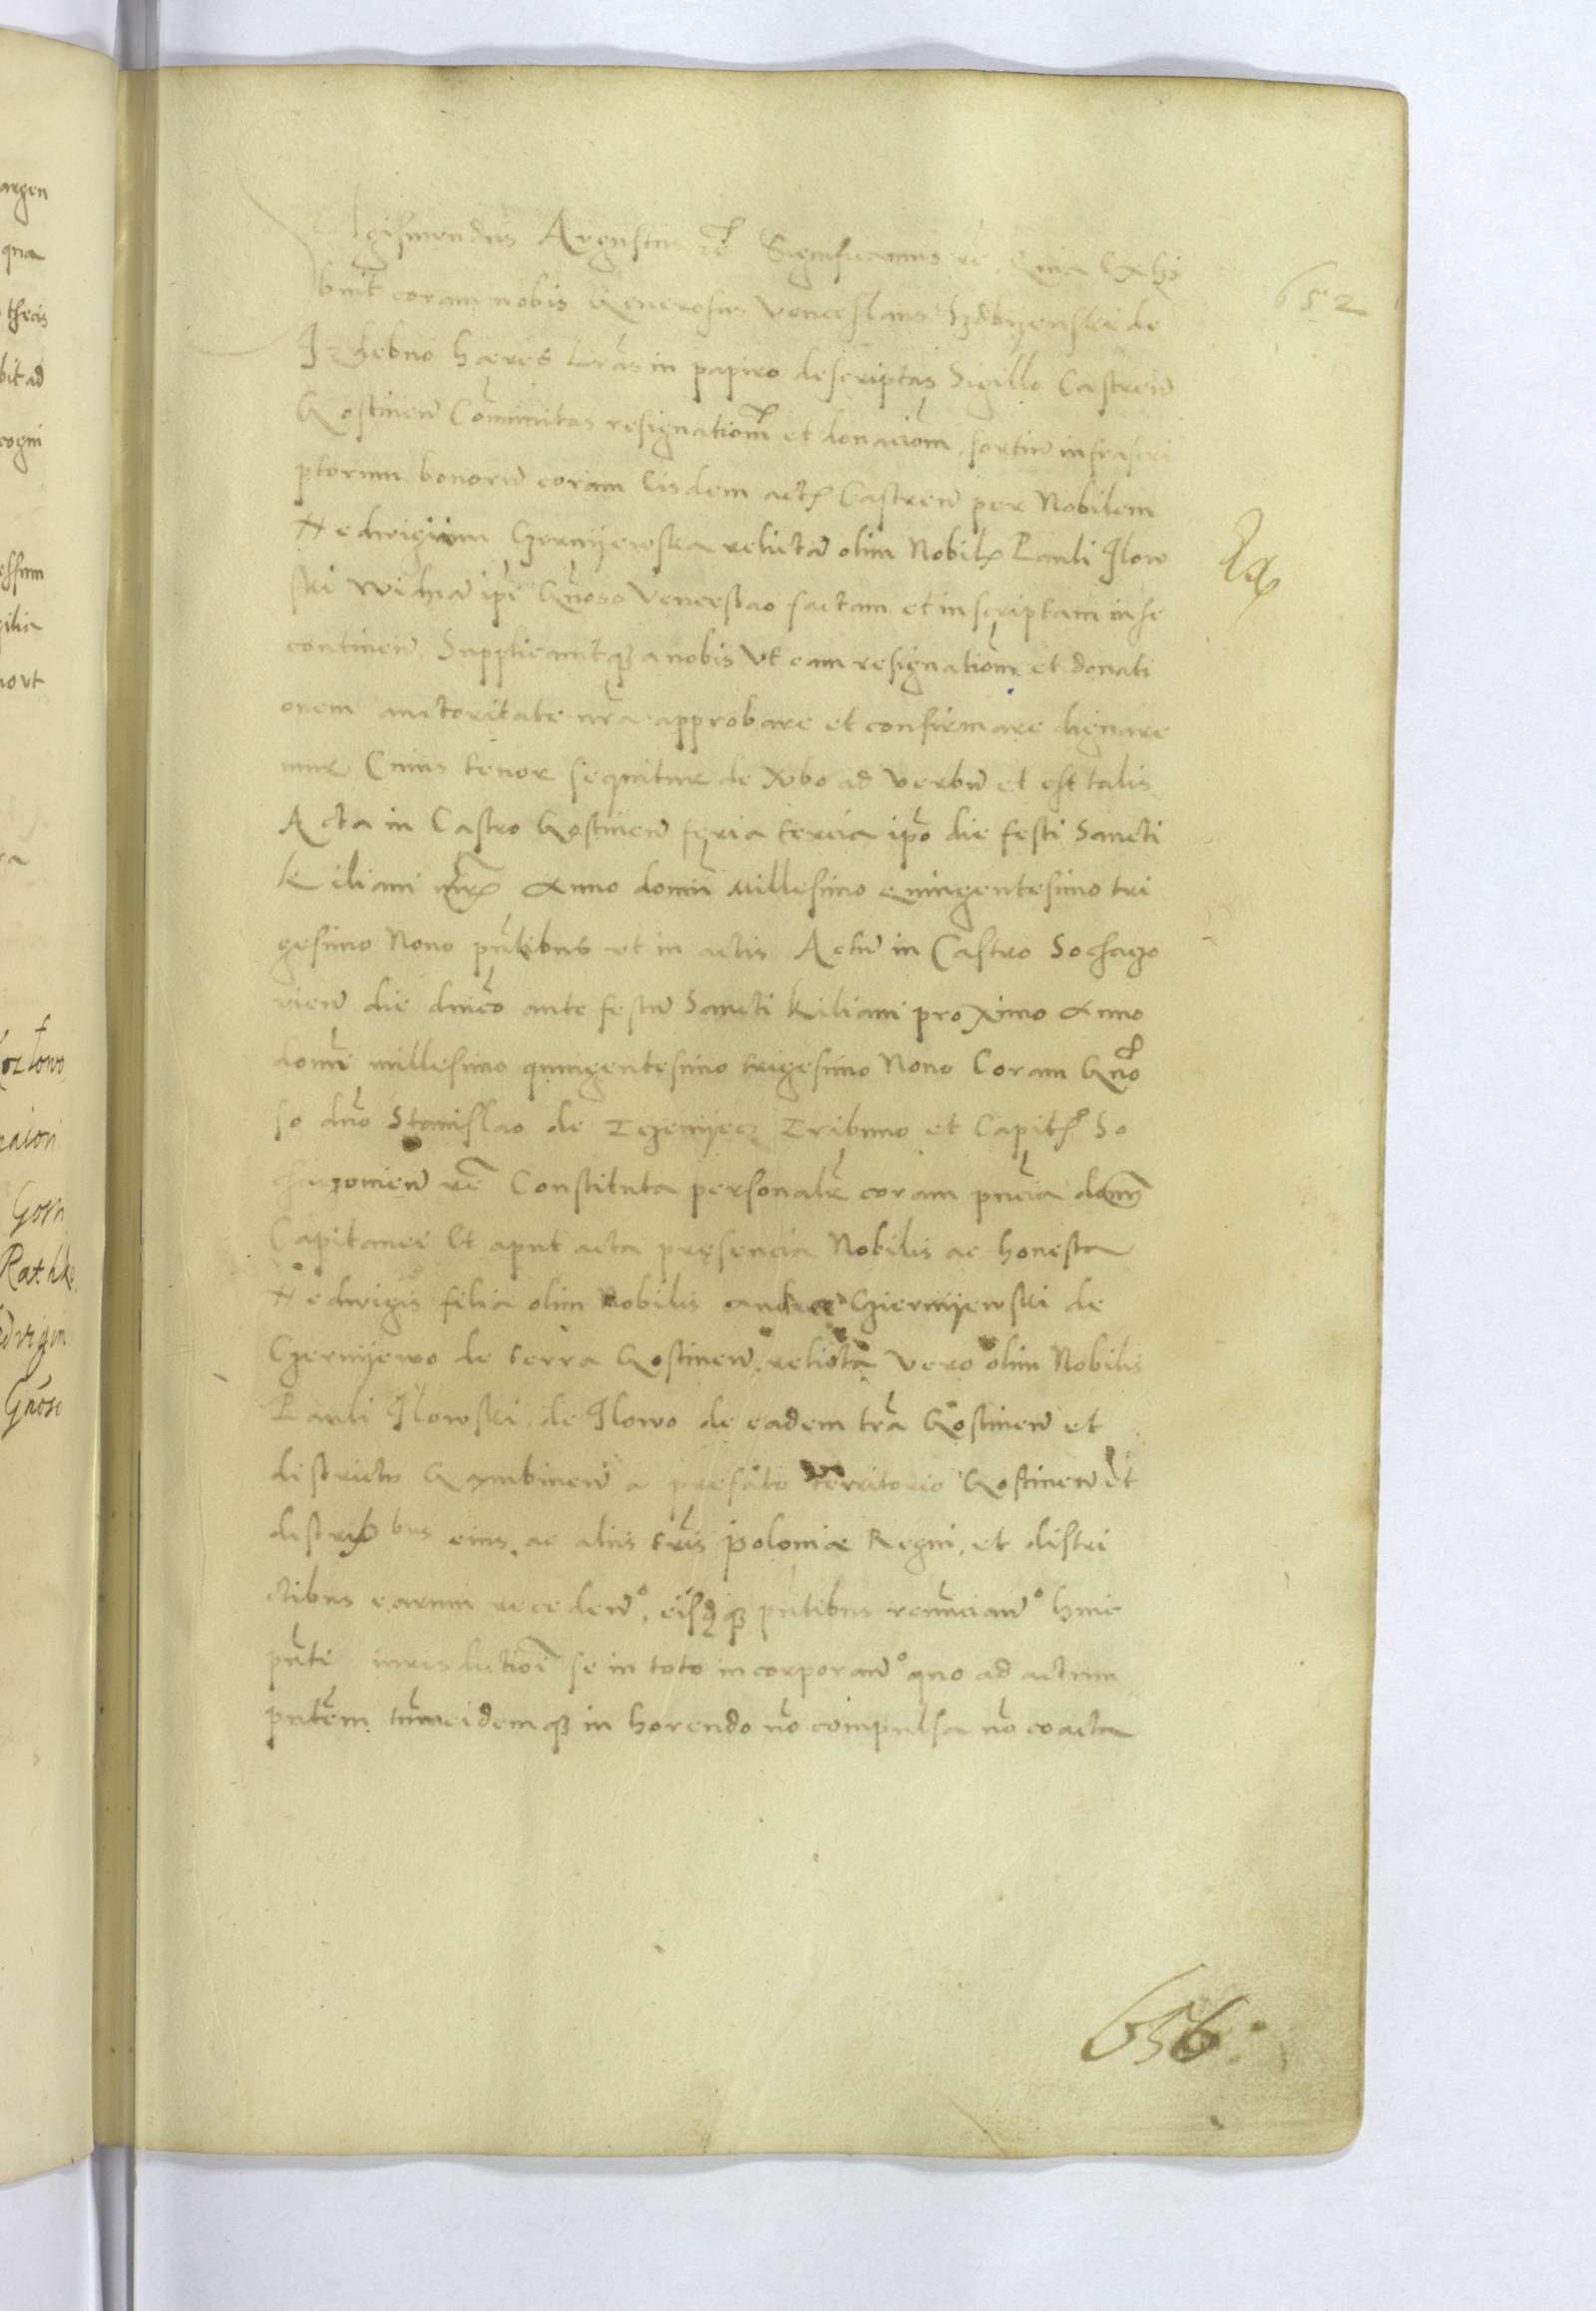 Sigismundus Augustus rē Significamus rē Quia Exhi
buit coram nobis Generosus Venceslaus Izdbyenski de
Izdebno hæres lrās in papiro descriptas Sigillo Castren̄
Gostinen̄ Com̄unitas resignationem et donacionem sortiū infrascri
ptorum bonorū coram eisdem actis Castren̄ per Nobilem
Hedwigim Czermyewska relictā olim Nobilis Pauli Ilow
ski ip̄i Gn̄oso Venceslao factam et inscriptam in se
continen̄ Supplicauitq3 a nobis Vt eam resignationem et donati
onem auctoritate nr̄a approbare et confirmare dignare
mur Cuius tenor sequitur de Vbo ad verbū et est talis
Acta in Castro Gostinen̄ feria tercia ip̄o die festi Sancti
Kiliani mr̄is Anno domini Millesimo Quingentesimo tri
gesimo Nono pn̄tibus vt in actis Actū in Castro Sochaczo
vien̄ die dn̄ico ante festū Sancti Kiliani proximo Anno
domī millesimo quingentesimo trigesimo Nono Coram Gn̄o
so dn̄o Stanislao de Tribuno et Capit. So
chaczouien̄ rē Constituta personalr̄ coram pn̄cia
Capitanei Et aput acta pręsencia Nobilis ac honesta
Hedwigis filia olim Nobilis andreæ Cziermyewski de
Czermyewo de terra Gostinen̄ relicta Vero olim Nobilis
Pauli Ilowski de Ilowo de eadem trā Gostinen̄ et
districtu Gambinen̄ a prefato territorio Gostinen̄ et
districtibus eius ac aliis tr̄is poloniæ Regni, et distri
ctibus earum receden̄, eisdq3 pn̄tibus renuncian̄ huic
pn̄ti iurisdictioni se in toto incorporan̄ quo ad actum
pn̄tem in horendo nō compulsa nō coacta
652
656